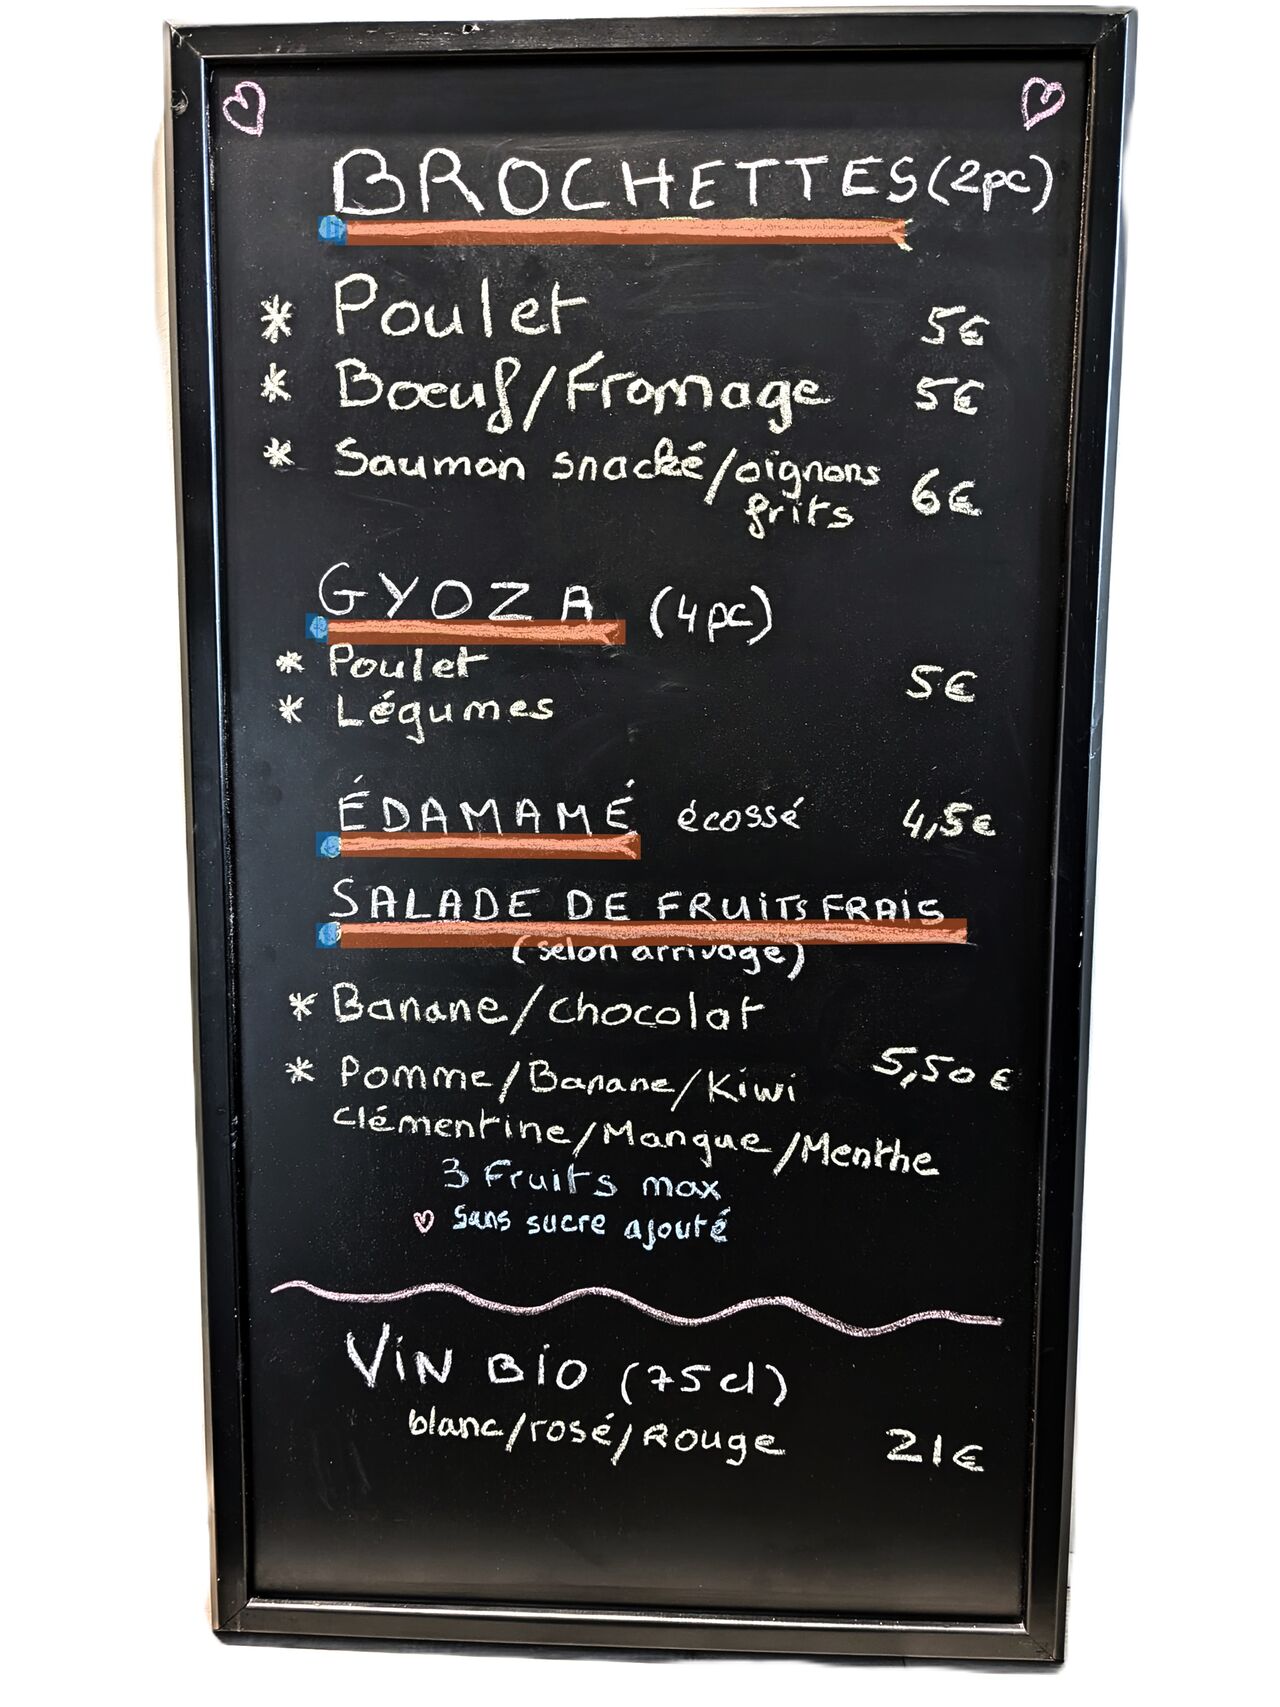 BROCHETTES (2pc)
* Poulet 5€
* Bœuf/Fromage 5€
* Saumon snacké/oignons
frits 6€
GYOZA (4pc)
* Poulet 5€
* Légumes
ÉDAMAMÉ écossé 4,5€
SALADE DE FRUITS FRAIS
(selon arrivage)
* Banane/chocolat
* Pomme/Banane/Kiwi 5,50€
clémentine/Mangue/Menthe
3 Fruits max
Sans sucre ajouté
VIN BIO (75cl)
blanc/rosé/Rouge 21€